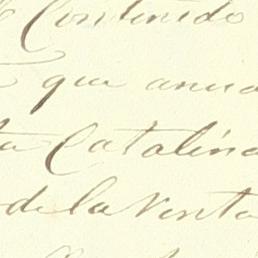 Contenido
que anua
ta Catalina
de la Venta